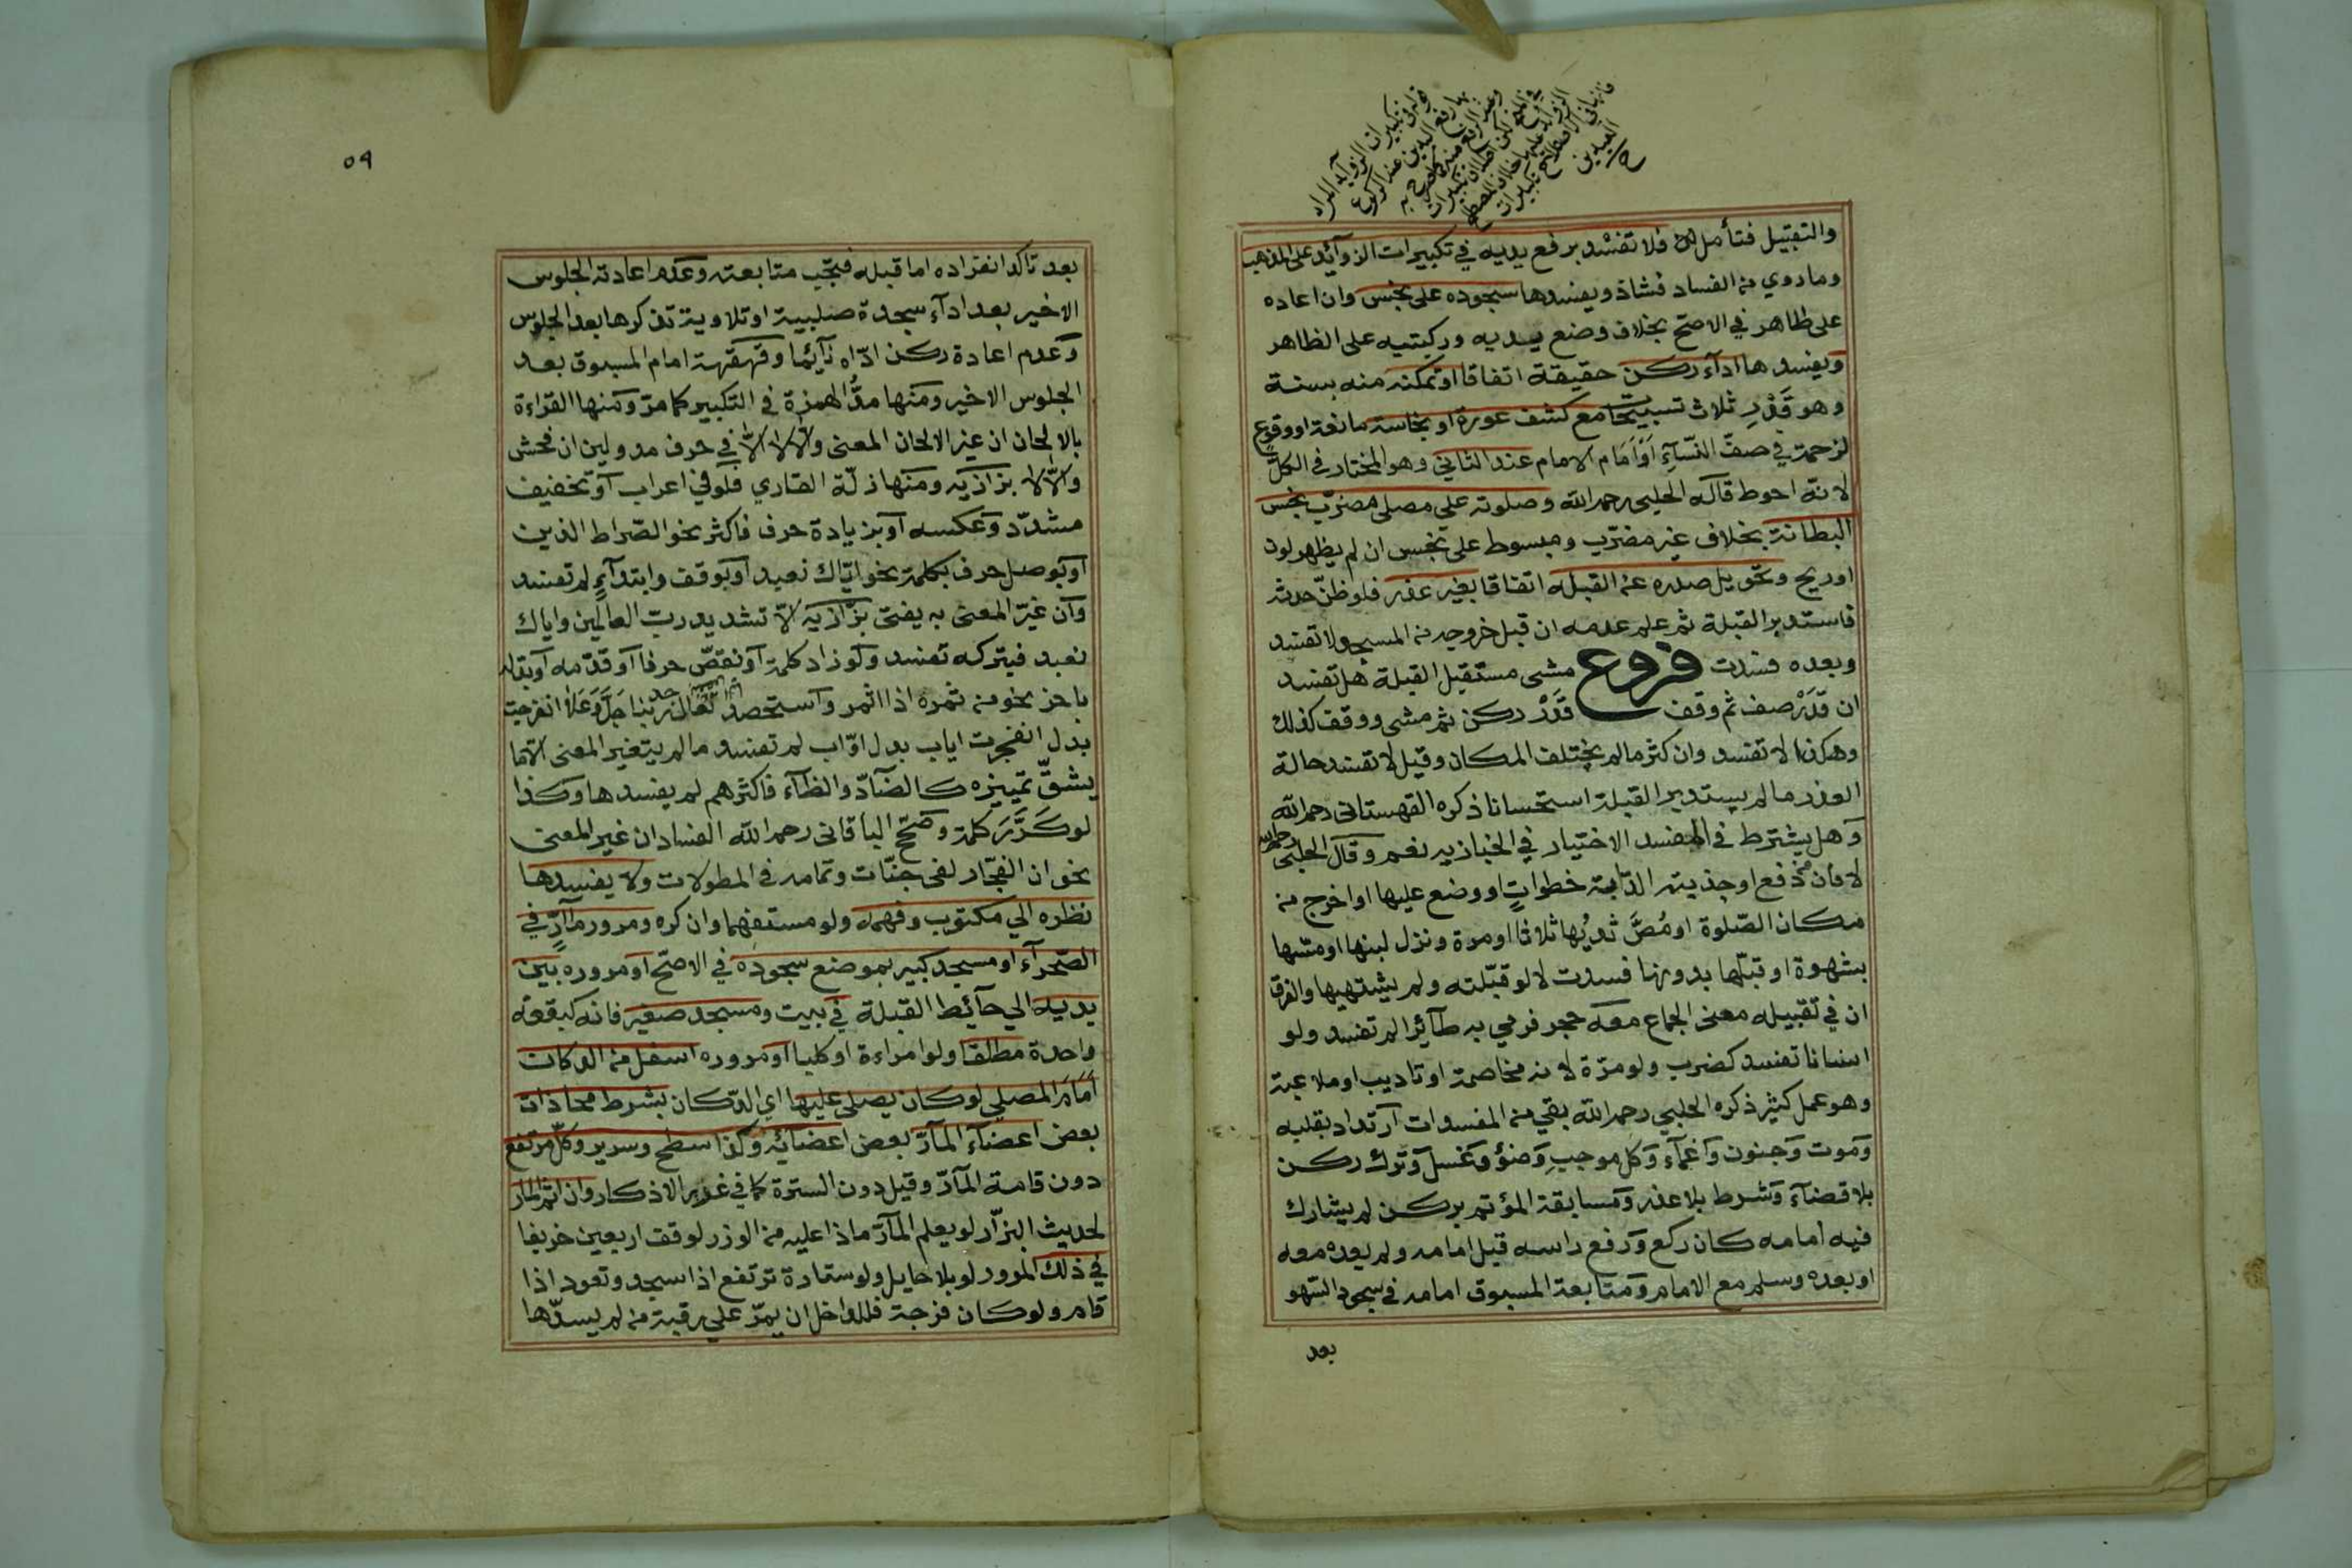 والتقبيل فتأمل فلا تفسد برفع يديه في تكبيرات الزوآئد على المذهب
وما روي من الفساد فشاذ ويفسدها سجوده على نجس وان اعاده
على طاهر في الاصح بخلاف وضع يديه وركبتيه على الظاهر
ويفسدها ادآء ركن حقيقة اتفاقا او تمكنه منه بسنة
وهو قَدْرِ ثلاث تسبيحات مع كشف عورة او نجاسة مانعة او وقوع
لزحمة في صفّ النّسآءِ اَوْ اَمَام الامام عند الثاني وهو المختار في الكلّ
لانّه احوط قاله الحلبي رحمه الله وصلوته على مصلى مضرّب نجس
البطانة بخلاف غير مضرّب ومبسوط على نجس ان لم يظهر لون
او ريح وتحويل صدره عن القبله اتفاقا بغير عذر فلو ظنّ حدثه
فاستدبر القبلة ثم علم عدمه ان قبل خروجه من المسجد لا تفسد
وبعده فسدت فروع مشى مستقبل القبلة هل تفسد
ان قَدْر صف ثم وقف قَدْر ركن ثم مشى ووقف كذلك
وهكذا لا تفسد وان كثر ما لم يختلف المكان وقيل لا تفسد حالة
العذر ما لم يستدبر القبلة استحسانا ذكره القهستاني رحمه الله
وَهل يشترط في المفسد الاختيار في الخبازيه نعم وقال الحلبي رحمه الله
لا فان دُفع او جذبته الدّابة خطواتٍ او وضع عليها او اخرج من
مكان الصّلوة او مُصَّ ثديُها ثلاثا او مرة ونزل لبنها او مسّها
بشهوة او قبّلها بدونها فسدت لا لو قبّلته ولم يشتهيها والفرق
ان في تقبيله معنى الجماع معه حجر فرمي به طآئرا لم تفسد ولو
انسانا تفسد كضرب ولو مرّة لانه مخاصمة او تاديب او ملاعبة
وهو عمل كثير ذكره الحلبي رحمه الله بقي من المفسدات ارتداد بقلبه
وَموت وَجنون وَاغمآء وَكل موجبِ وَضؤ وَغسل وَترك ركن
بلا قضآء وَشرط بلا عذر وَمسابقة المؤتم بركن لم يشارك
فيه امامه كان ركع وَرفع راسه قبل امامه ولم يعده معه
او بعده وسلم مع الامام وَمتابعة المسبوق امامه في سجود السّهو
بعد
٥٩
بعد تاكد انفراده اما قبله فتجب متابعته وعَدم اعادته الجلوس
الاخير بعد ادآء سجدة صلبية او تلاوية تذكرها بعد الجلوس
وَعدم اعادة ركن ادّاه نآئما وقهقهة امام المسبوق بعد
الجلوس الاخير ومَنها مدُّ الهمزة في التكبير كما مرّ وَمنها القراءة
بالالحان ان غير الالحان المعنى والّا لا الّا في حرف مد ولين ان فحش
والّا لا بزازيه ومنها زلّة القاري فلو في اعراب اَو تخفيف
مشدّد وَعكسه اَو بزيادة حرف فاكثر نحو الصّراط الذين
اَو بوصل حرف بكلمة نحو ايّاك نعبد اَو بوقف وابتدآءٍ لم تفسد
وَان غيّر المعنى به يفتى بزّازيه الّا تشديد ربّ العالمين واياك
نعبد فبتركه تفسد ولَو زاد كلمة اَو نقصّ حرفا اَو قدّمه اَو بدله
باخر نحو من ثمره اذا اثمر وَاستحصد تعالى جد ربّنا انفرجت
بدل انفجرت اياب بدل اوّاب لم تفسد ما لم يتغير المعنى الّا ما
يشقّ تمييزه كالضّآد والظآء فاكثرهم لم يفسدها وكذا
لو كَرَّرَ كلمة وَصحّح الباقاني رحمه الله الفساد ان غير المعنى
نحو ان الفجّار لفى جنّات وتمامه في المطولات ولا يفسدها
نظره الي مكتوب وفهمه ولو مستفهما وان كره ومرور مآرٍّ في
الصّحرآء او مسجد كبير بموضع سجوده في الاصحّ او مروره بين
يديه الي حآئيط القبلة في بيت ومسجد صغير فانه كبقعة
واحدة مطلقا ولو امراءة او كلبا او مروره اسفل من الدكان
اَمَامَ المصلي لو كان يصلي عليها اي الدّكان بشرط محاذات
بعض اعضآء المآرّ بعض اعضآئه وَكذا سطح وسرير وكلّ مرتفع
دون قامة المآرّ وقيل دون السترة كما في غرر الاذكار وان اثم المار
لحديث البزّار لو يعلم المآرّ ماذا عليه من الوزر لوقف اربعين خريفا
في ذلك المرور لو بلا حايل ولو ستارة ترتفع اذا سجد وتعود اذا
قام ولو كان فرجة فللداخل ان يمرّ علي رقبة من لم يسدّها